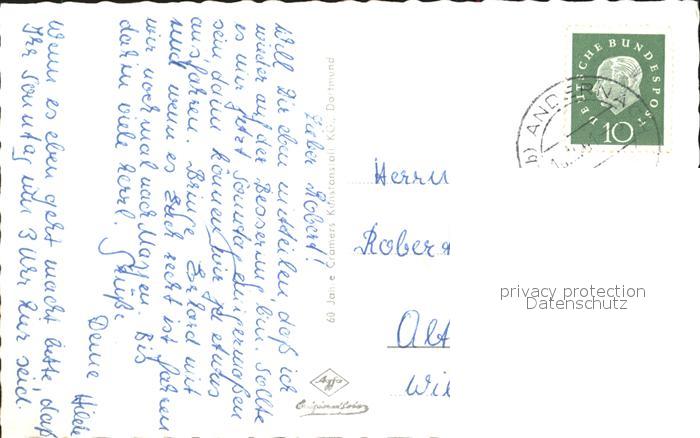 Lieber Robert!
Will Dir eben mitteilen, daß ich
wieder auf der Besserung bin. Sollte
es mir jetzt Sonntag einigermaßen
sein dann können wir ja etwas
ausfahren. Bringe Erhard mit
und wenn es Euch recht ist fahren
wir noch mal nach Mayen. Bis
dahin viele herzl. Grüße
Deine Hilde
Wenn es eben geht macht bitte, daß
Ihr Sonntag um 3 Uhr hier seid.
60 Jahre Cramers Kunstanstalt KG., Dortmund
Agfa
DEUTSCHE BUNDESPOST
10
ANDERNA
Herrn
Rober
Alt
Wil
privacy protection
Datenschutz